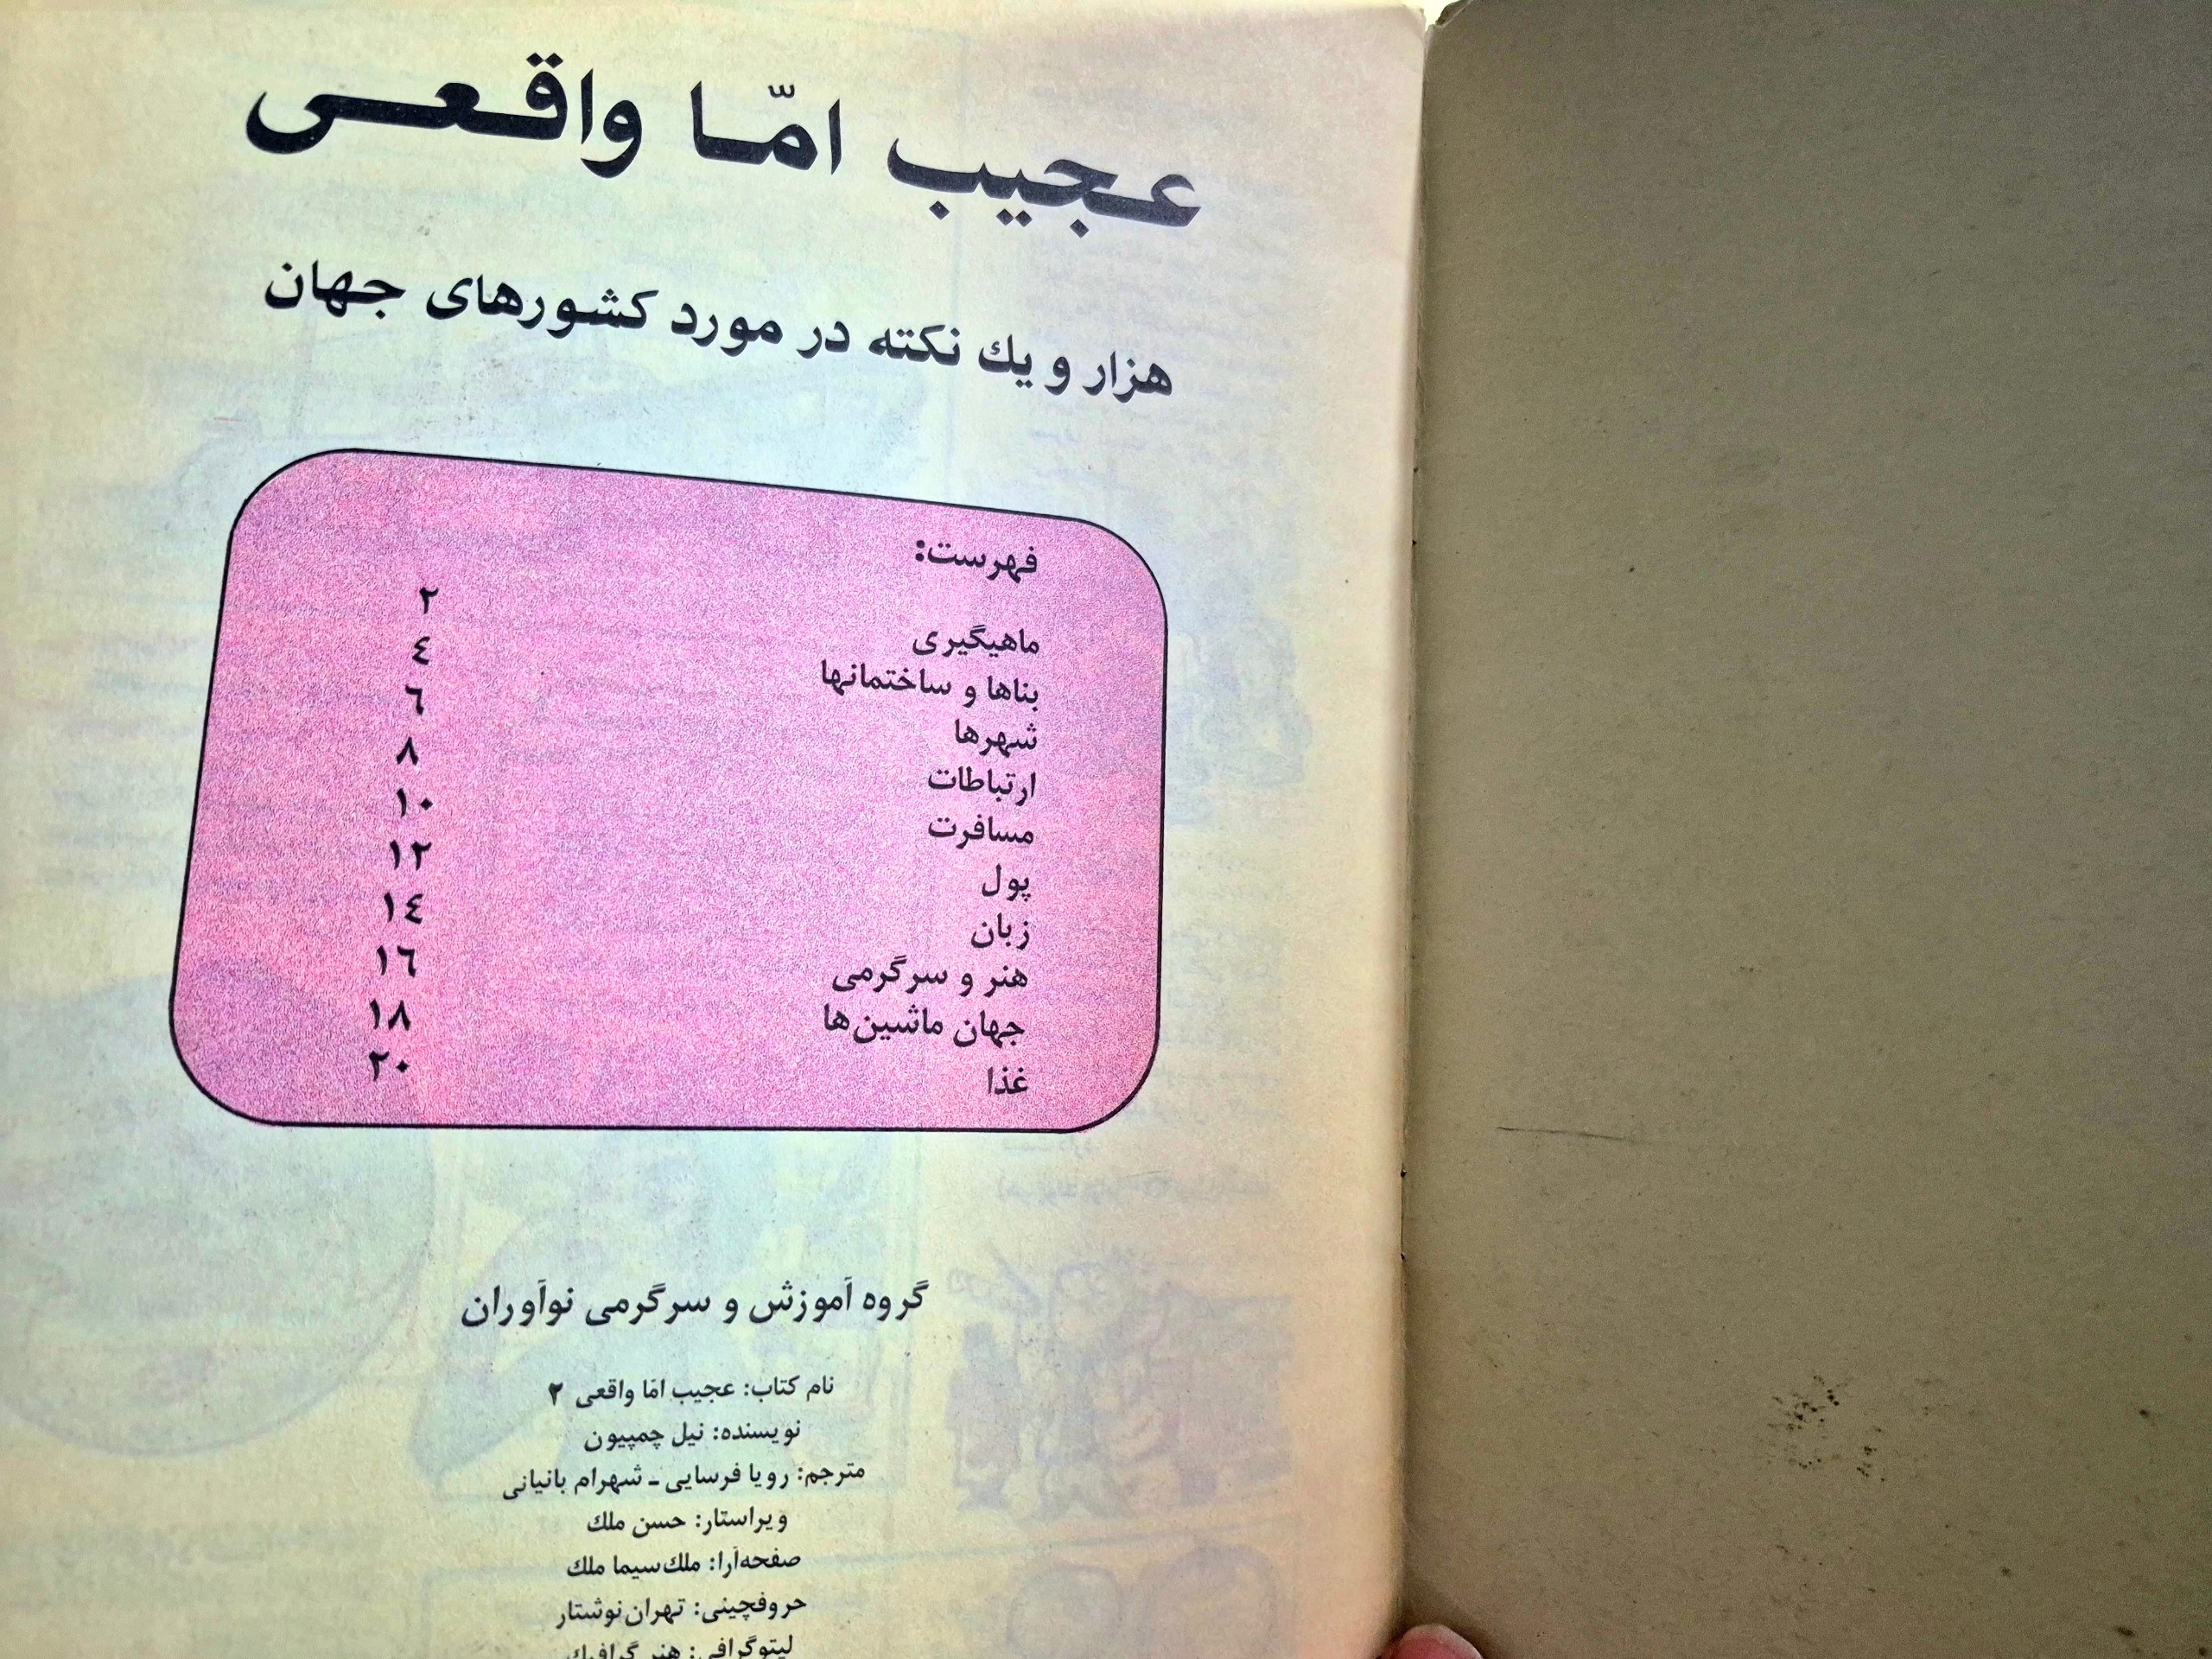 عجیب امّا واقعی
هزار و یك نکته در مورد کشورهای جهان
فهرست:
ماهیگیری ٢
بناها و ساختمانها ٤
شهرها ٦
ارتباطات ٨
مسافرت ١٠
پول ١٢
زبان ١٤
هنر و سرگرمی ١٦
جهان ماشین‌ها ١٨
غذا ٢٠
گروه آموزش و سرگرمی نوآوران
نام کتاب: عجیب امّا واقعی ٢
نویسنده: نیل چمپیون
مترجم: رویا فرسایی ـ شهرام بانیانی
ویراستار: حسن ملك
صفحه‌آرا: ملك‌سیما ملك
حروفچینی: تهران‌نوشتار
لیتوگرافی: هنر گرافیك